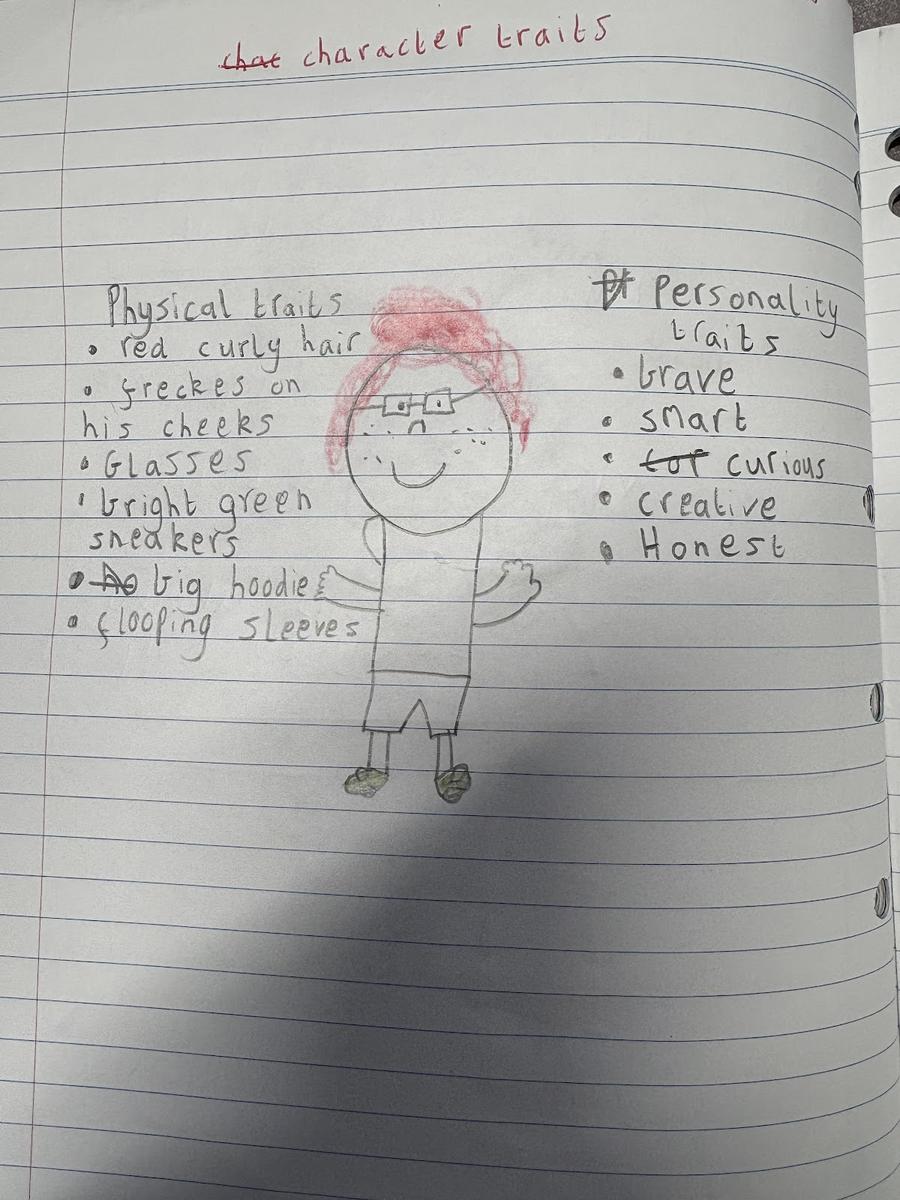 chat character traits
Physical traits
• red curly hair
• freckes on
his cheeks
• Glasses
• bright green
sneakers
• ho big hoodie
• flooping sleeves
Personality
traits
• brave
• smart
• cor curious
• creative
• Honest